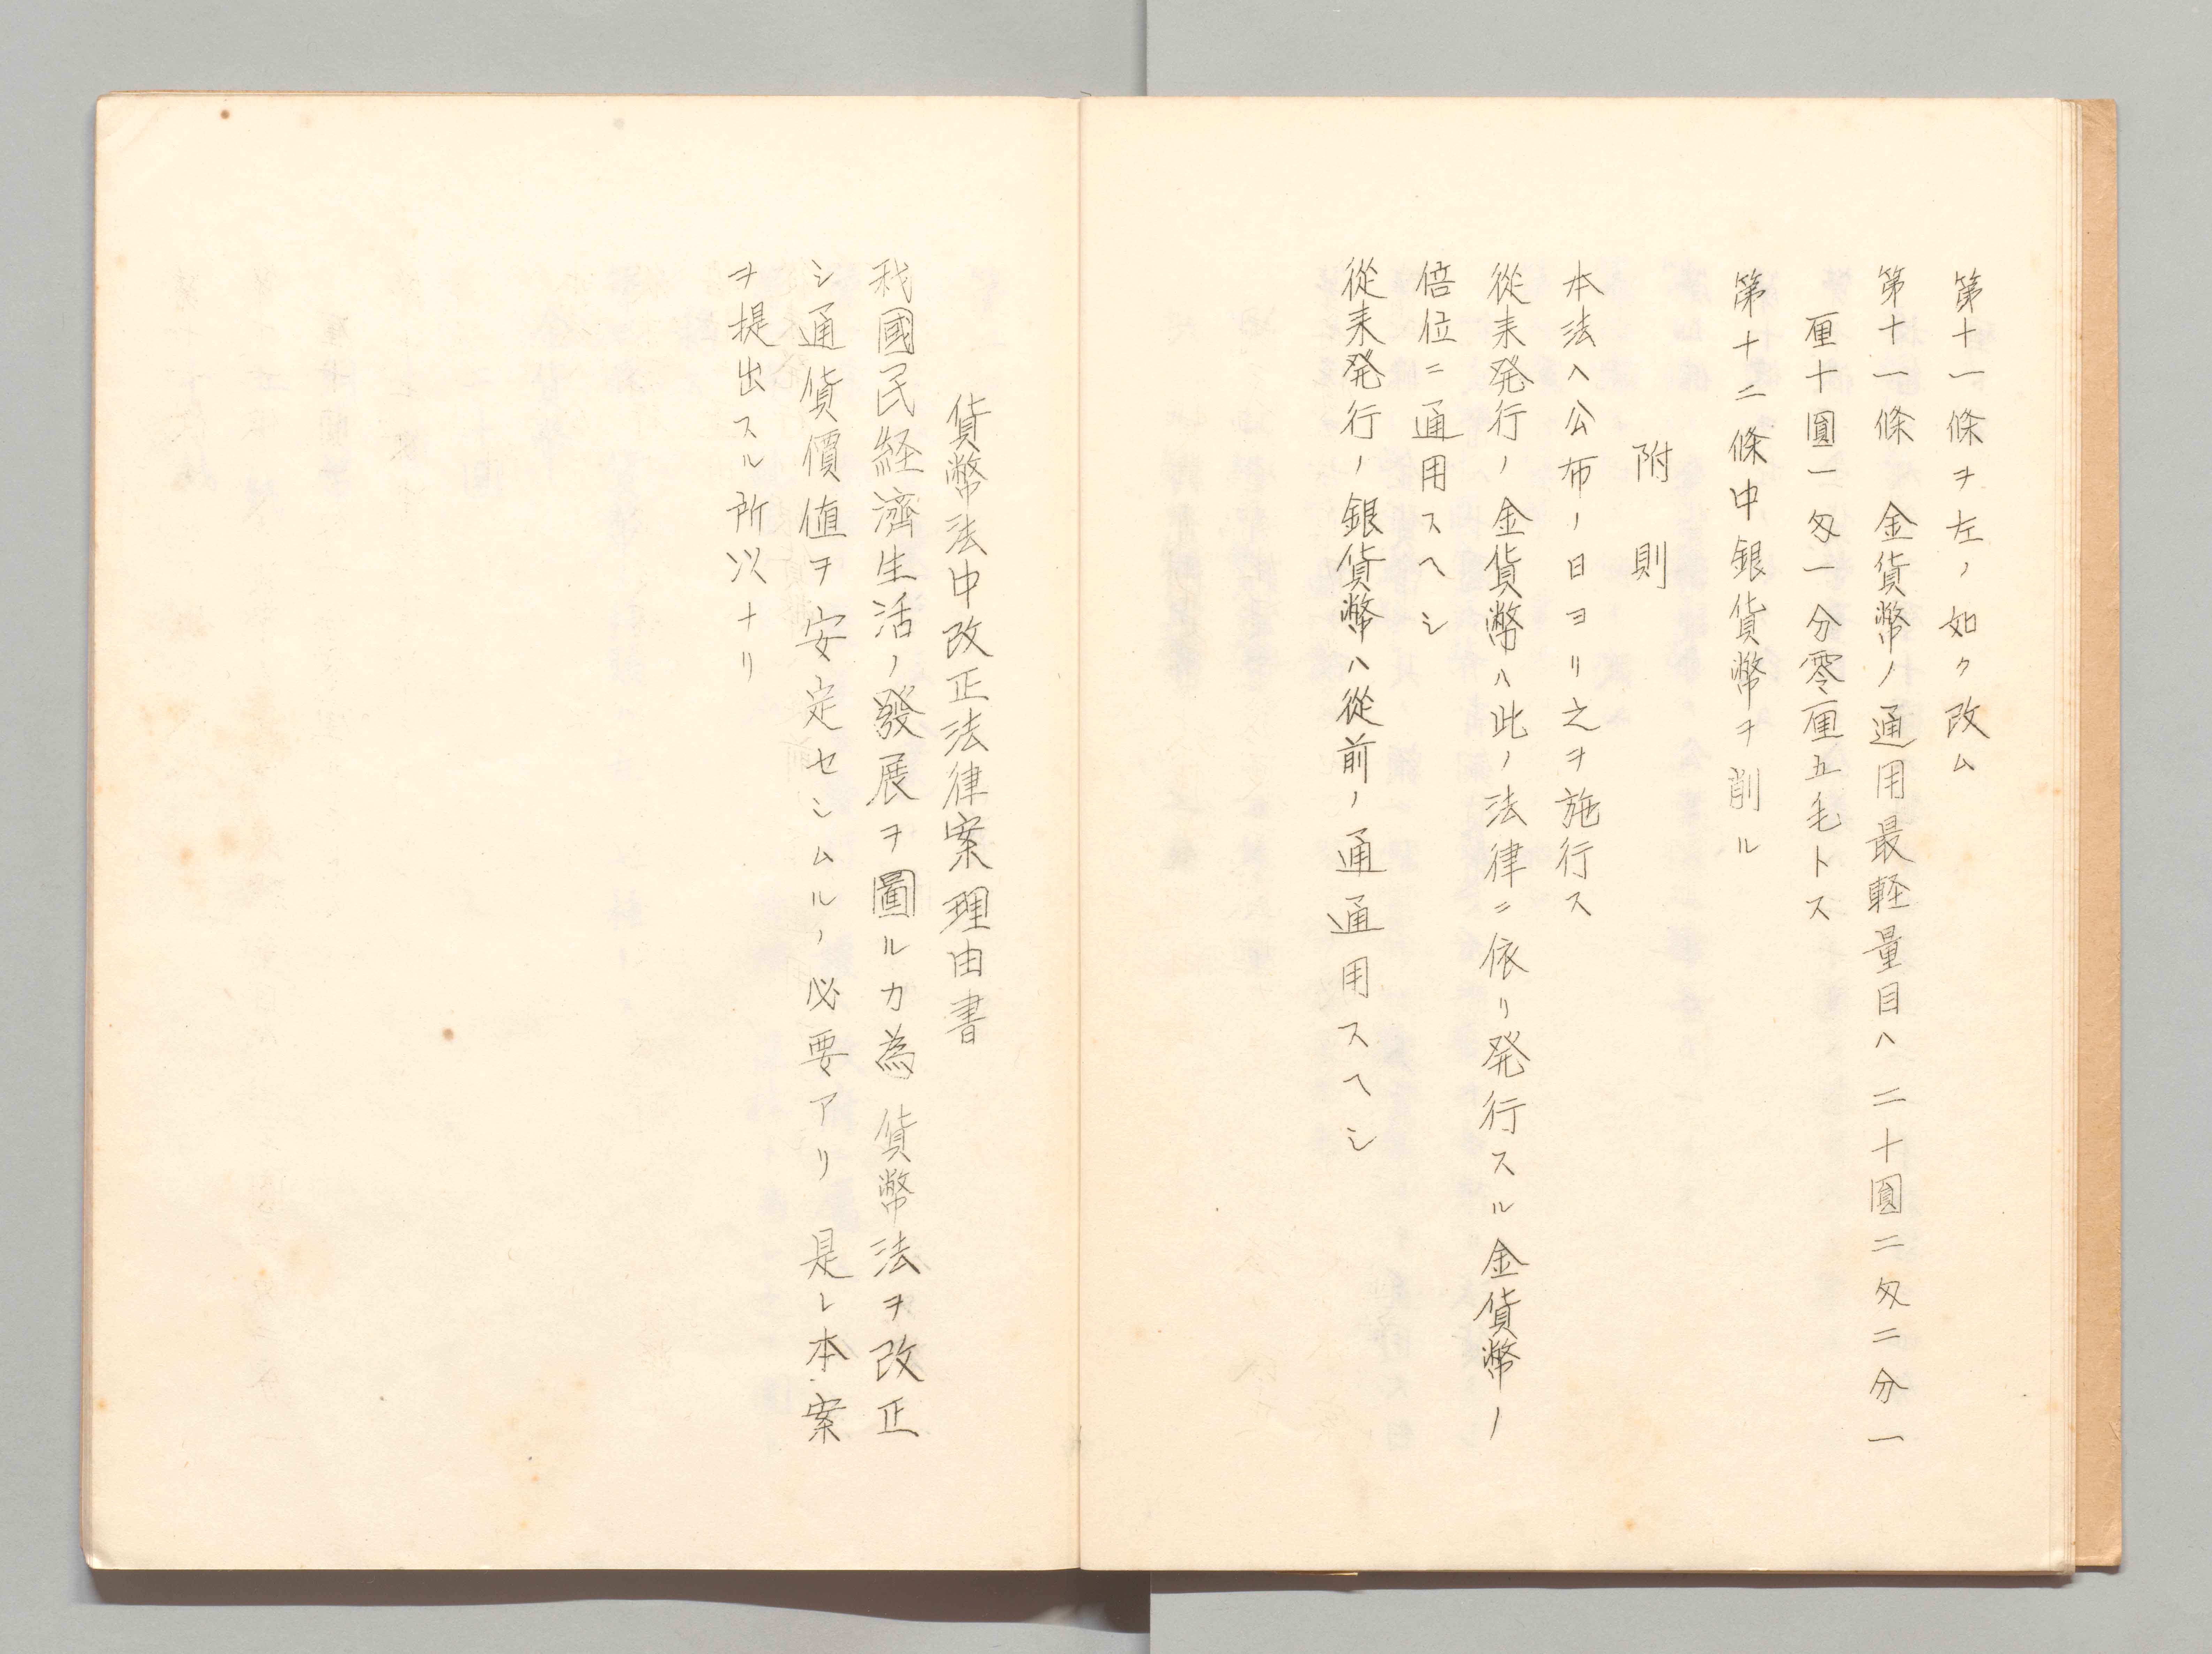 第十一條ヲ左ノ如ク改ム
第十一條　金貨幣ノ通用最軽量目ハ二十圓二匁二分一
厘十圓一匁一分零厘五毛トス
第十二條中銀貨幣ヲ削ル
附則
本法ハ公布ノ日ヨリ之ヲ施行ス
從来発行ノ金貨幣ハ此ノ法律ニ依リ発行スル金貨幣ノ
倍位ニ通用スヘシ
從来発行ノ銀貨幣ハ從前ノ通通用スヘシ
貨幣法中改正法律案理由書
我國民経濟生活ノ發展ヲ圖ルカ為貨幣法ヲ改正
シ通貨價値ヲ安定セシムルノ必要アリ是レ本案
ヲ提出スル所以ナリ